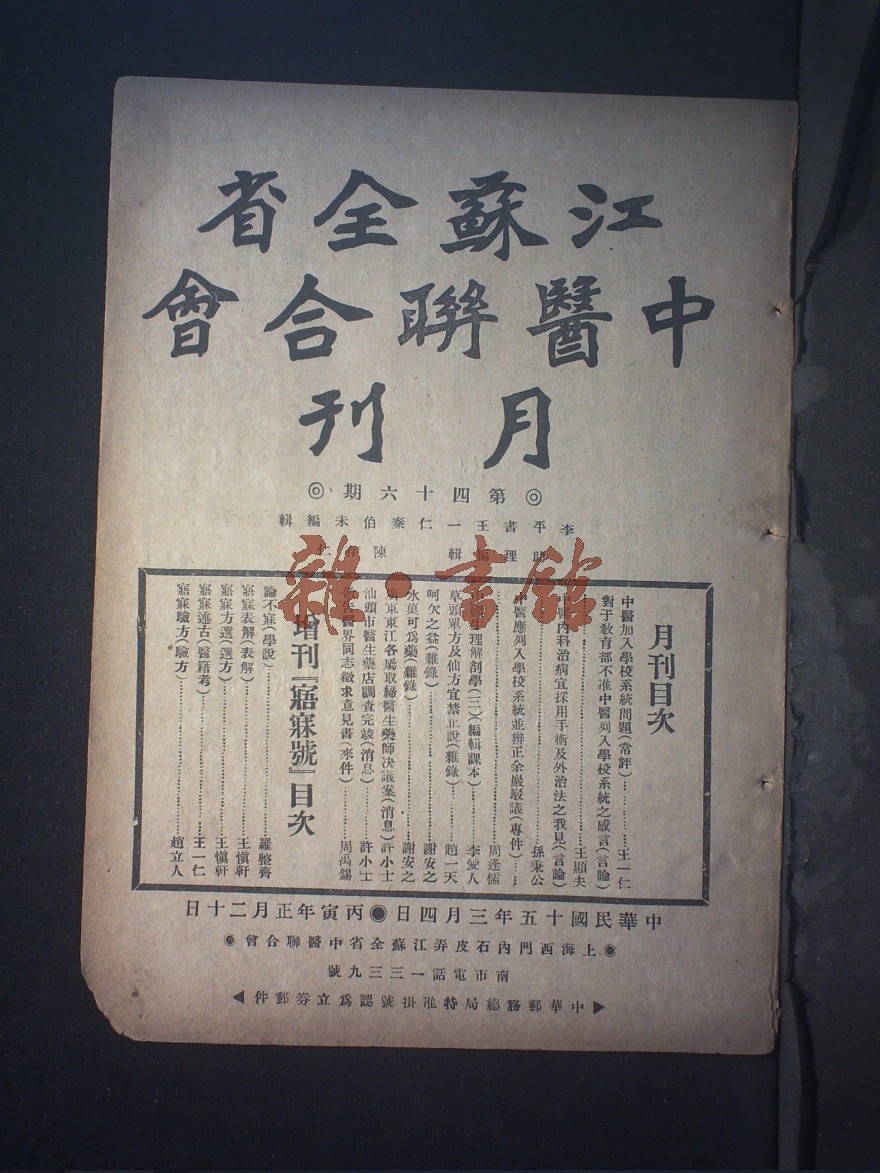 江蘇全省
中醫聯合會
月刊
◎第四十六期◎
李平書王一仁秦伯未編輯
助理編輯 陳存仁
雜·書館
月刊目次
中醫加入學校系統問題(常評)…………王一仁
對于教育部不准中醫列入學校系統之感言(言論)
…………王顯夫
中醫內科治病宜採用手術及外治法之我見(言論)
…………孫秉公
中醫應列入學校系統並辨正余嚴駁議(專件)……
…………周逢儒
生理解剖學(三)(編輯課本)…………李愛人
草頭單方及仙方宜禁止說(雜錄)…………趙一天
呵欠之益(雜錄)…………謝安之
水菓可爲藥(雜錄)…………謝安之
廣東東江各屬取締醫生藥師決議案(消息)許小士
汕頭市醫生藥店調查完竣(消息)…………許小士
醫界同志徵求意見書(來件)…………周禹錫
增刊『寤寐號』目次
論不寐(學說)…………羅整齊
寤寐表解(表解)…………王愼軒
寤寐方選(選方)…………王愼軒
寤寐述古(醫籍考)…………王一仁
寤寐驗方(驗方)…………趙立人
中華民國十五年三月四日◉丙寅年正月二十日
◉上海西門內石皮弄江蘇全省中醫聯合會◉
南市電話一三三九號
▶中華郵務總局特准掛號認爲立券郵件◀